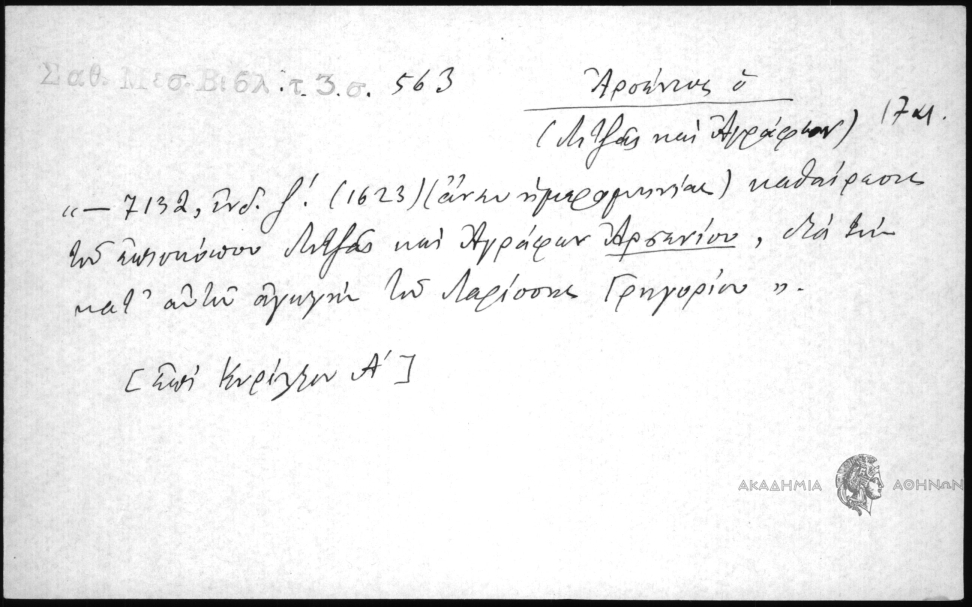 Σαθ. Μεσ. Βιβλ. τ. 3. σ. 563
Ἀρσένιος ὁ
(Λιτζᾶς καὶ Ἀγράφων) 17 αι.
«— 7132, ἰνδ. ζ'. (1623) (ἄνευ ἡμερομηνίας) καθαίρεσις
τοῦ ἐπισκόπου Λιτζᾶς καὶ Ἀγράφων Ἀρσενίου, διὰ τὴν
κατ' αὐτοῦ ἀγωγὴν τοῦ Λαρίσσης Γρηγορίου».
[ἐπὶ Κυρίλλου Α']
ΑΚΑΔΗΜΙΑ ΑΘΗΝΩΝ